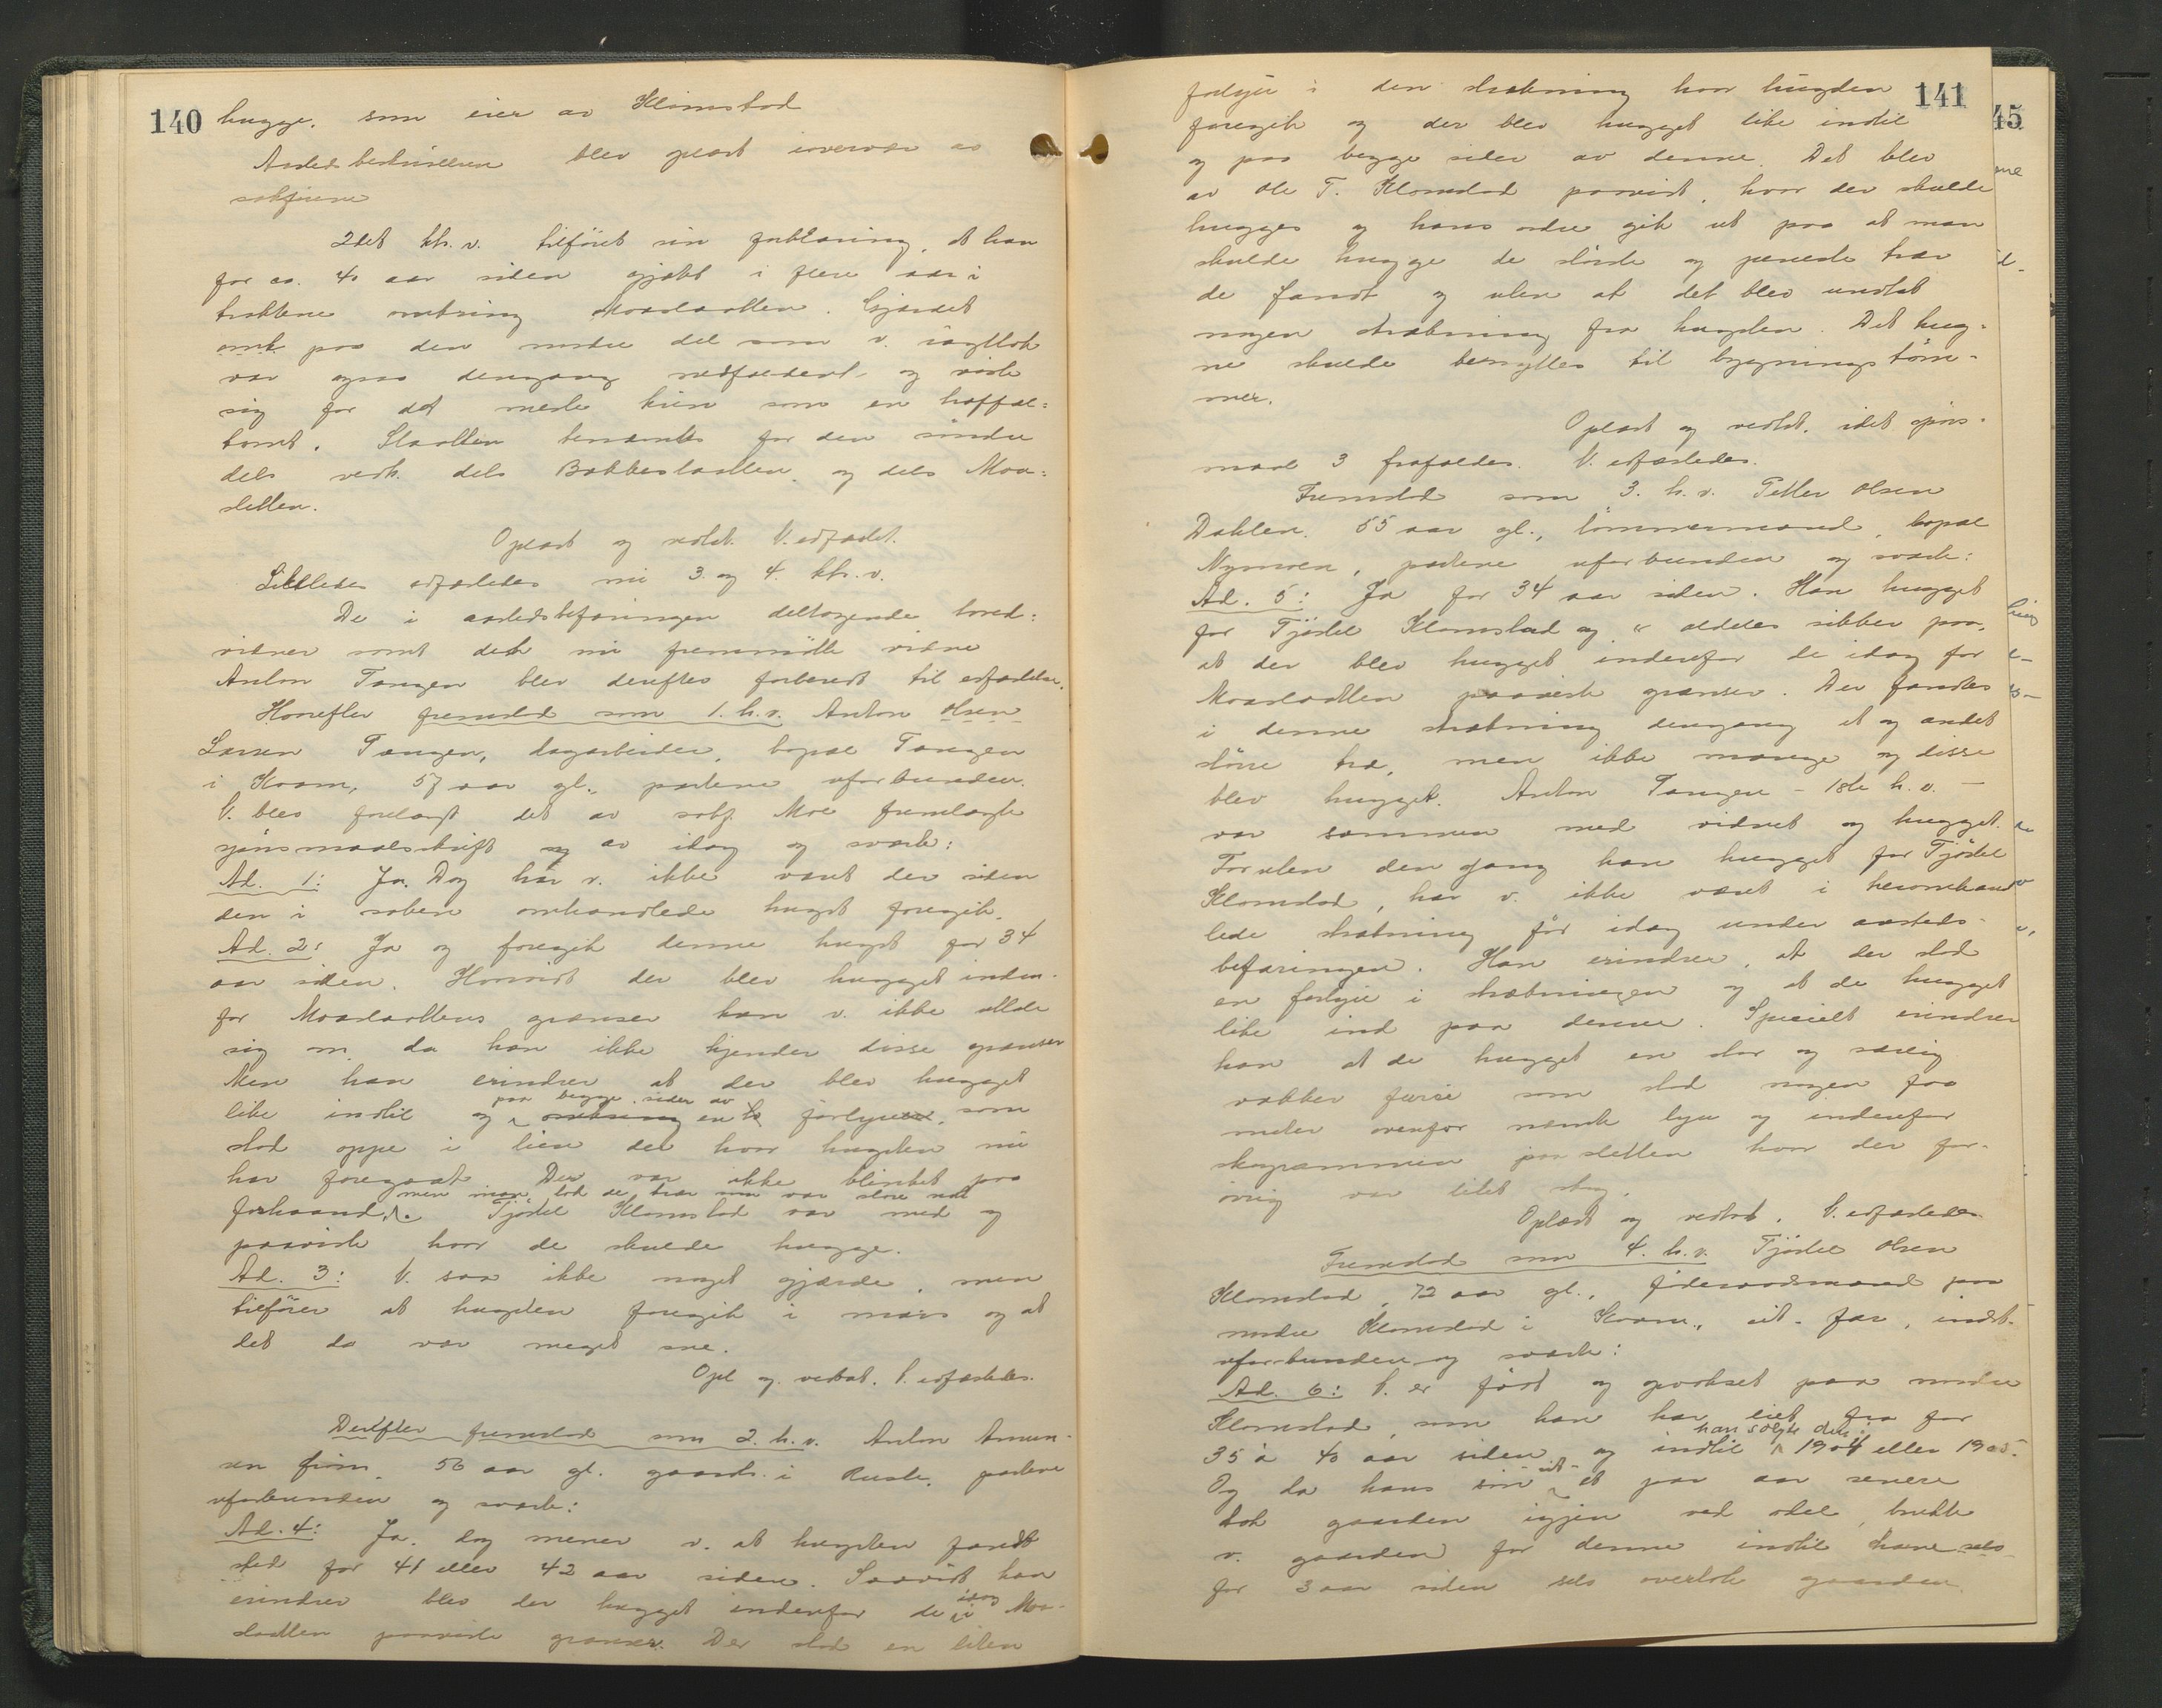 140
hugge, som eier av Klomstad
Aasteds beskrivelsen blev oplæst i overvær av
sakførerne
2det kh. v. tilføiet sin forklaring, at han
for ca. 40 aar siden gjætet i flere aar i
traktene omkring Moaslaatten. Gjærdet
omk paa den nordre del som v. iagttok
var ogsaa dengang nedfaldent og viste
sig for det meste kun som en haffæl-
tomt. Slaatten benævntes for den søndre
dels vedk. dels Bakkeslaatten og dels Moa-
sletten.
Oplæst og vedtat. V. edfæstet.
Likeledes edfæstedes nu 3. og 4. kh. v.
De i aastedsbefaringen deltagende hoved-
vidner samt det nu fremmøtte vidne
Anton Tangen blev derefter forberedt til edfæstelse.
Hvorefter fremstod som 1. h. v. Anton Olsen
Larsen Tangen, dagarbeider, bopæl Tangen
i Kvam, 57 aar gl., partene uforbunden.
V. blev forelagt det av sakf. Moe fremlagte
spørsmaalsskrift av idag og svarte:
Ad. 1: Ja. Dog har v. ikke været der siden
den i saken omhandlede hugst foregik.
Ad. 2: Ja og foregik denne hugst for 34
aar siden. Hvorvidt der blev hugget inden-
for Moaslaattens grænser kan v. ikke uttale
sig om da han ikke kjender disse grænser
Men han erindrer at der blev hugget
paa begge sider av
like indtil og omkring en forlyu, som
stod oppe i lien der hvor hugsten nu
har foregaat. Der var ikke blinket paa
men man tok de trær som var store nok
forhaand. Tjøstel Klomstad var med og
paaviste hvor de skulde hugge.
Ad. 3: V. saa ikke noget gjærde, men
tilføier at hugsten foregik i mars og at
det da var meget sne.
Opl og vedtat. V. edfæstedes.
Derefter fremstod som 2. h. v. Anton Amun-
sen 56 aar gl. gaardb. i Ruste, partene
uforbunden og svarte:
Ad. 4: Ja. Dog mener v. at hugsten fandt
sted for 41 eller 42 aar siden. Saavidt han
idag
erindrer blev der hugget indenfor de i Moa-
slaatten paaviste grænser. Der stod en liten
141
forlyu i den strækning hvor hugsten
foregik og der blev hugget like indtil
og paa begge sider av denne. Det blev
av Ole T. Klomstad paavist, hvor der skulde
hugges og hans ordre gik ut paa at man
skulde hugge de største og peneste trær
de fandt og uten at det blev undtat
nogen strækning fra hugsten. Det hug-
ne skulde benyttes til bygningstøm-
mer.
Oplæst og vedtat, idet spørs-
maal 3 frafaldes. V. edfæstedes.
Fremstod som 3. h. v. Petter Olsen
Dahlen. 55 aar gl., tømmermand, bopæl
Nymoen, partene uforbunden og svarte:
Ad. 5: Ja for 34 aar siden. Han hugget
for Tjøstel Klomstad og er aldeles sikker paa,
at der blev hugget indenfor de idag for
Moaslaatten paaviste grænser. Der fandtes
i denne strækning dengang et og andet
større træ, men ikke mange og disse
blev hugget. Anton Tangen - 1ste h. v. -
var sammen med vidnet og hugget.
Foruten den gang han hugget for Tjøstel
Klomstad, har v. ikke været i heromhand
lede strækning før idag under aasteds-
befaringen. Han erindrer, at der stod
en forlyu i strækningen og at de hugget
like ind paa denne. Specielt erindrer
han at de hugget en stor og særlig
vakker furu som stod nogen faa
meter ovenfor nævnte lyu og indenfor
skogrammen paa sletten hvor der for-
øvrig var litet skog.
Oplæst og vedtat. V. edfæstedes
Fremstod som 4. h. v. Tjøstel Olsen
Klomstad, 72 aar gl., føderaadsmand paa
nordre Klomstad i Kvam, cit. far, indst.
uforbunden og svarte:
Ad. 6: V. er født og opvokset paa nordre
Klomstad, som han har eiet fra for
han solgte den i
35 à 40 aar siden og indtil 1904 eller 1905.
cit-
Og da hans søn et par aar senere
tok gaarden igjen ved odel, brukte
v. gaarden for denne indtil han selv
for 3 aar siden selv overtok gaarden
45